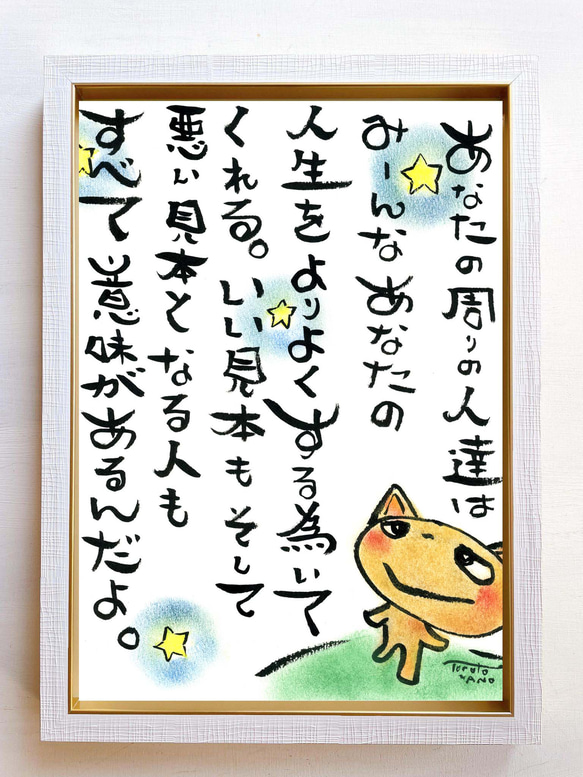 あなたの周りの人達は
みーんなあなたの
人生をよりよくする為いて
くれる。いい見本もそして
悪い見本となる人も
すべて意味があるんだよ。
YANO